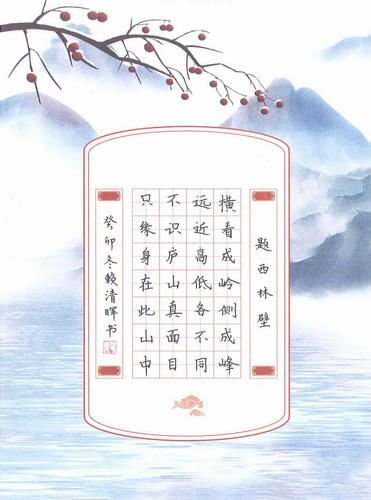 题西林壁
横看成岭侧成峰
远近高低各不同
不识庐山真面目
只缘身在此山中
癸卯冬赖清晖书